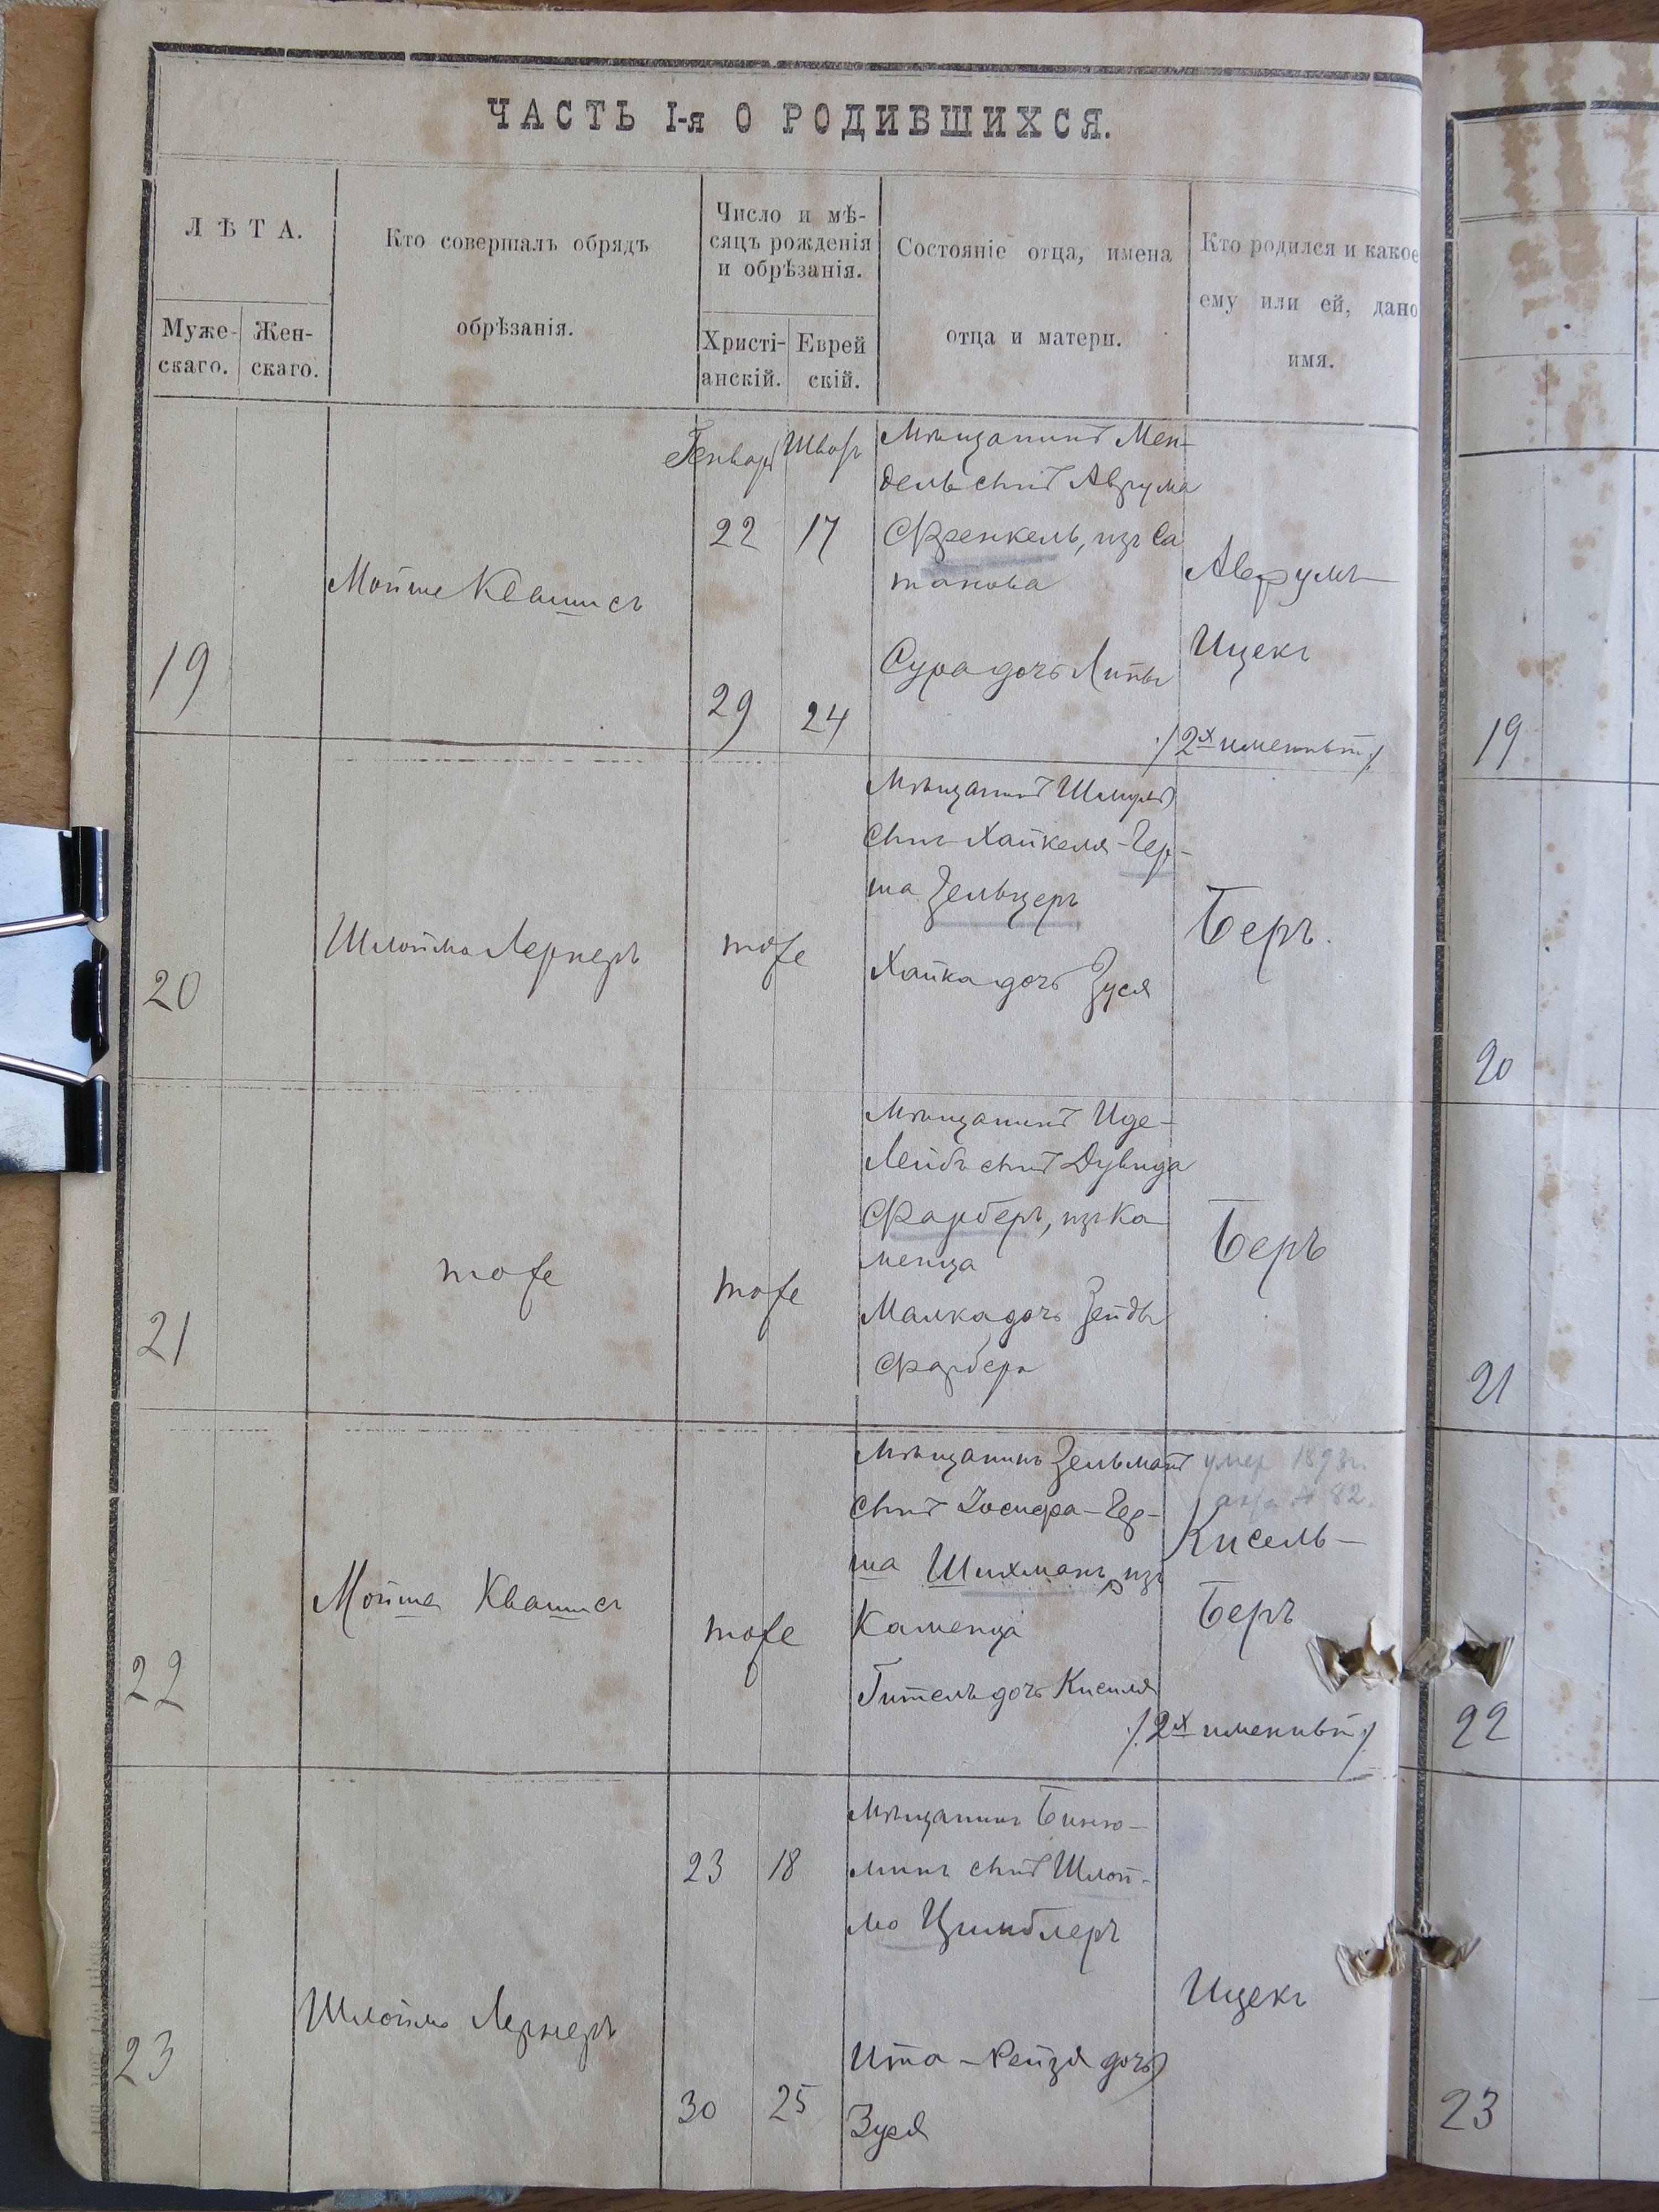 ЧАСТЬ I-я О РОДИВШИХСЯ.
ЛѢТА.
Муже-
скаго.
Жен-
скаго.
Кто совершалъ обрядъ
обрѣзанія.
Число и мѣ-
сяцъ рожденія
и обрѣзанія.
Христі-
анскій.
Еврей
скій.
Состояніе отца, имена
отца и матери.
Кто родился и какое
ему или ей, дано
имя.
19
Мойше Квашисъ
Генваря Шватъ
22 17
29 24
Мѣщанинъ Мен-
дель сынъ Аврума
Френкель, изъ Са
танова
Сура дочь Липы
Аврумъ-
Ицекъ
/2х именный/
19
20
Шлойма Лернеръ
тоже
Мѣщанинъ Шмуль
сынъ Хайкеля-Гер-
ша Зельцеръ
Хайка дочь Зуся
Беръ.
20
21
тоже
тоже
Мѣщанинъ Иде-
Лейбъ сынъ Дувида
Фарберъ, изъ Ка
менца
Малка дочь Зейды
Фарбера
Беръ
21
22
Мойше Квашисъ
тоже
Мѣщанинъ Зельманъ
сынъ Іосифа-Гер-
ша Шихманъ, изъ
Каменца
Гитель дочь Кисиля
умер 1893г.
№ 82.
Кисель-
Беръ
/2х именный/
22
23
Шлойма Лернеръ
23 18
30 25
Мѣщанинъ Биню-
минъ сынъ Шлой-
мо Цимблеръ
Ита-Рейзя дочь
Зуся
Ицекъ
23